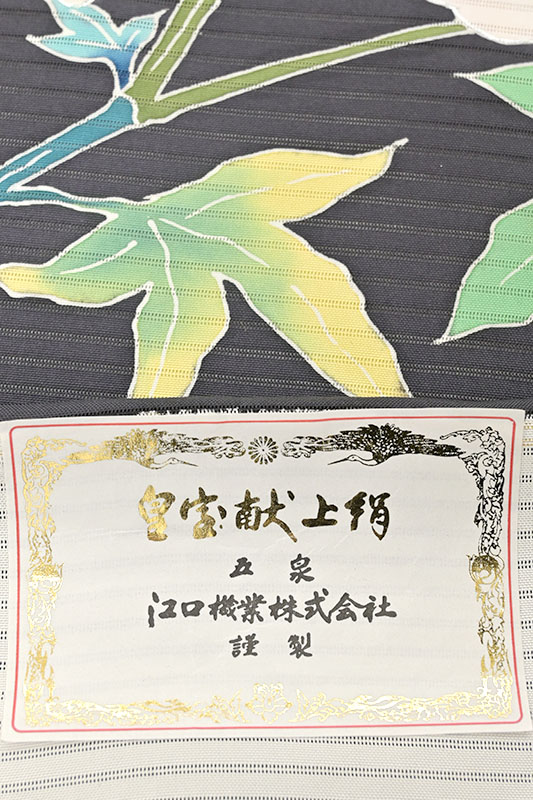 皇室献上絹
五泉
江口機業株式会社
謹製